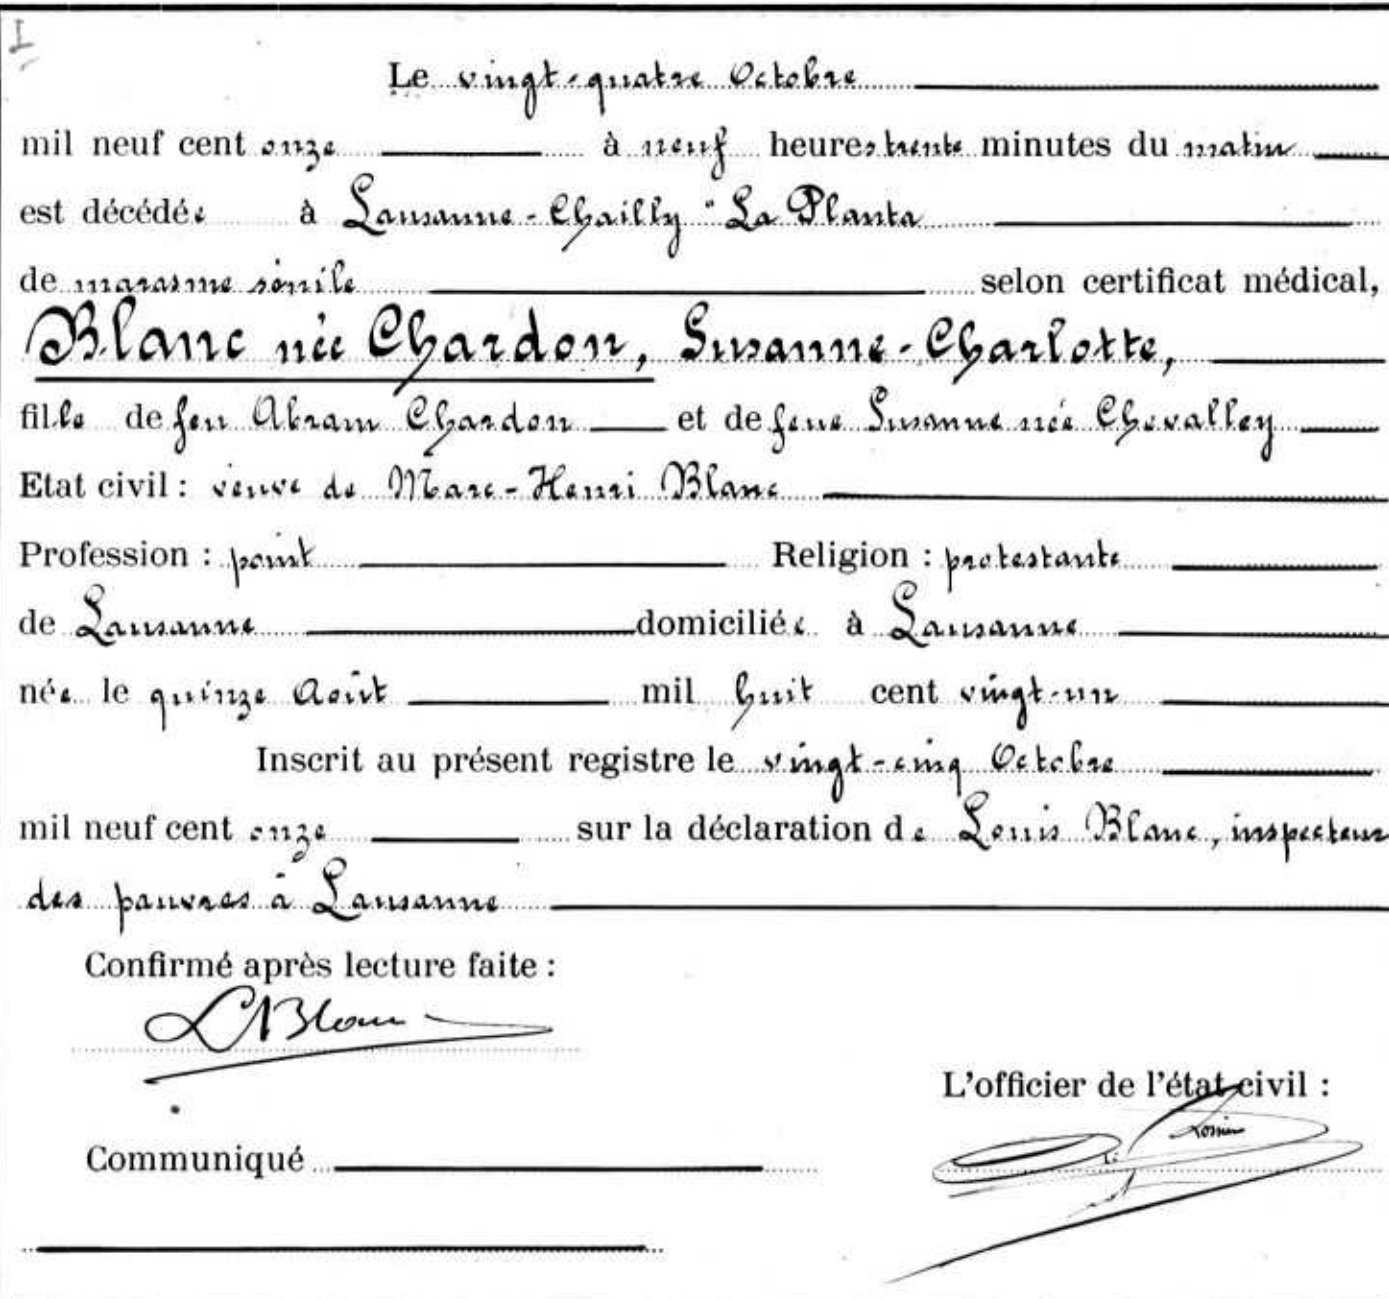 I
Le vingt-quatre Octobre
mil neuf cent onze à neuf heures trente minutes du matin
est décédée à Lausanne-Chailly "La Planta
de marasme sénile selon certificat médical,
Blanc née Chardon, Susanne-Charlotte,
fille de feu Abram Chardon et de feue Susanne née Chevalley
Etat civil : veuve de Marc-Henri Blanc
Profession : point Religion : protestante
de Lausanne domiciliée à Lausanne
née le quinze Août mil huit cent vingt-un
Inscrit au présent registre le vingt-cinq Octobre
mil neuf cent onze sur la déclaration de Louis Blanc, inspecteur
des pauvres à Lausanne
Confirmé après lecture faite :
L Blanc
L'officier de l'état civil :
Communiqué